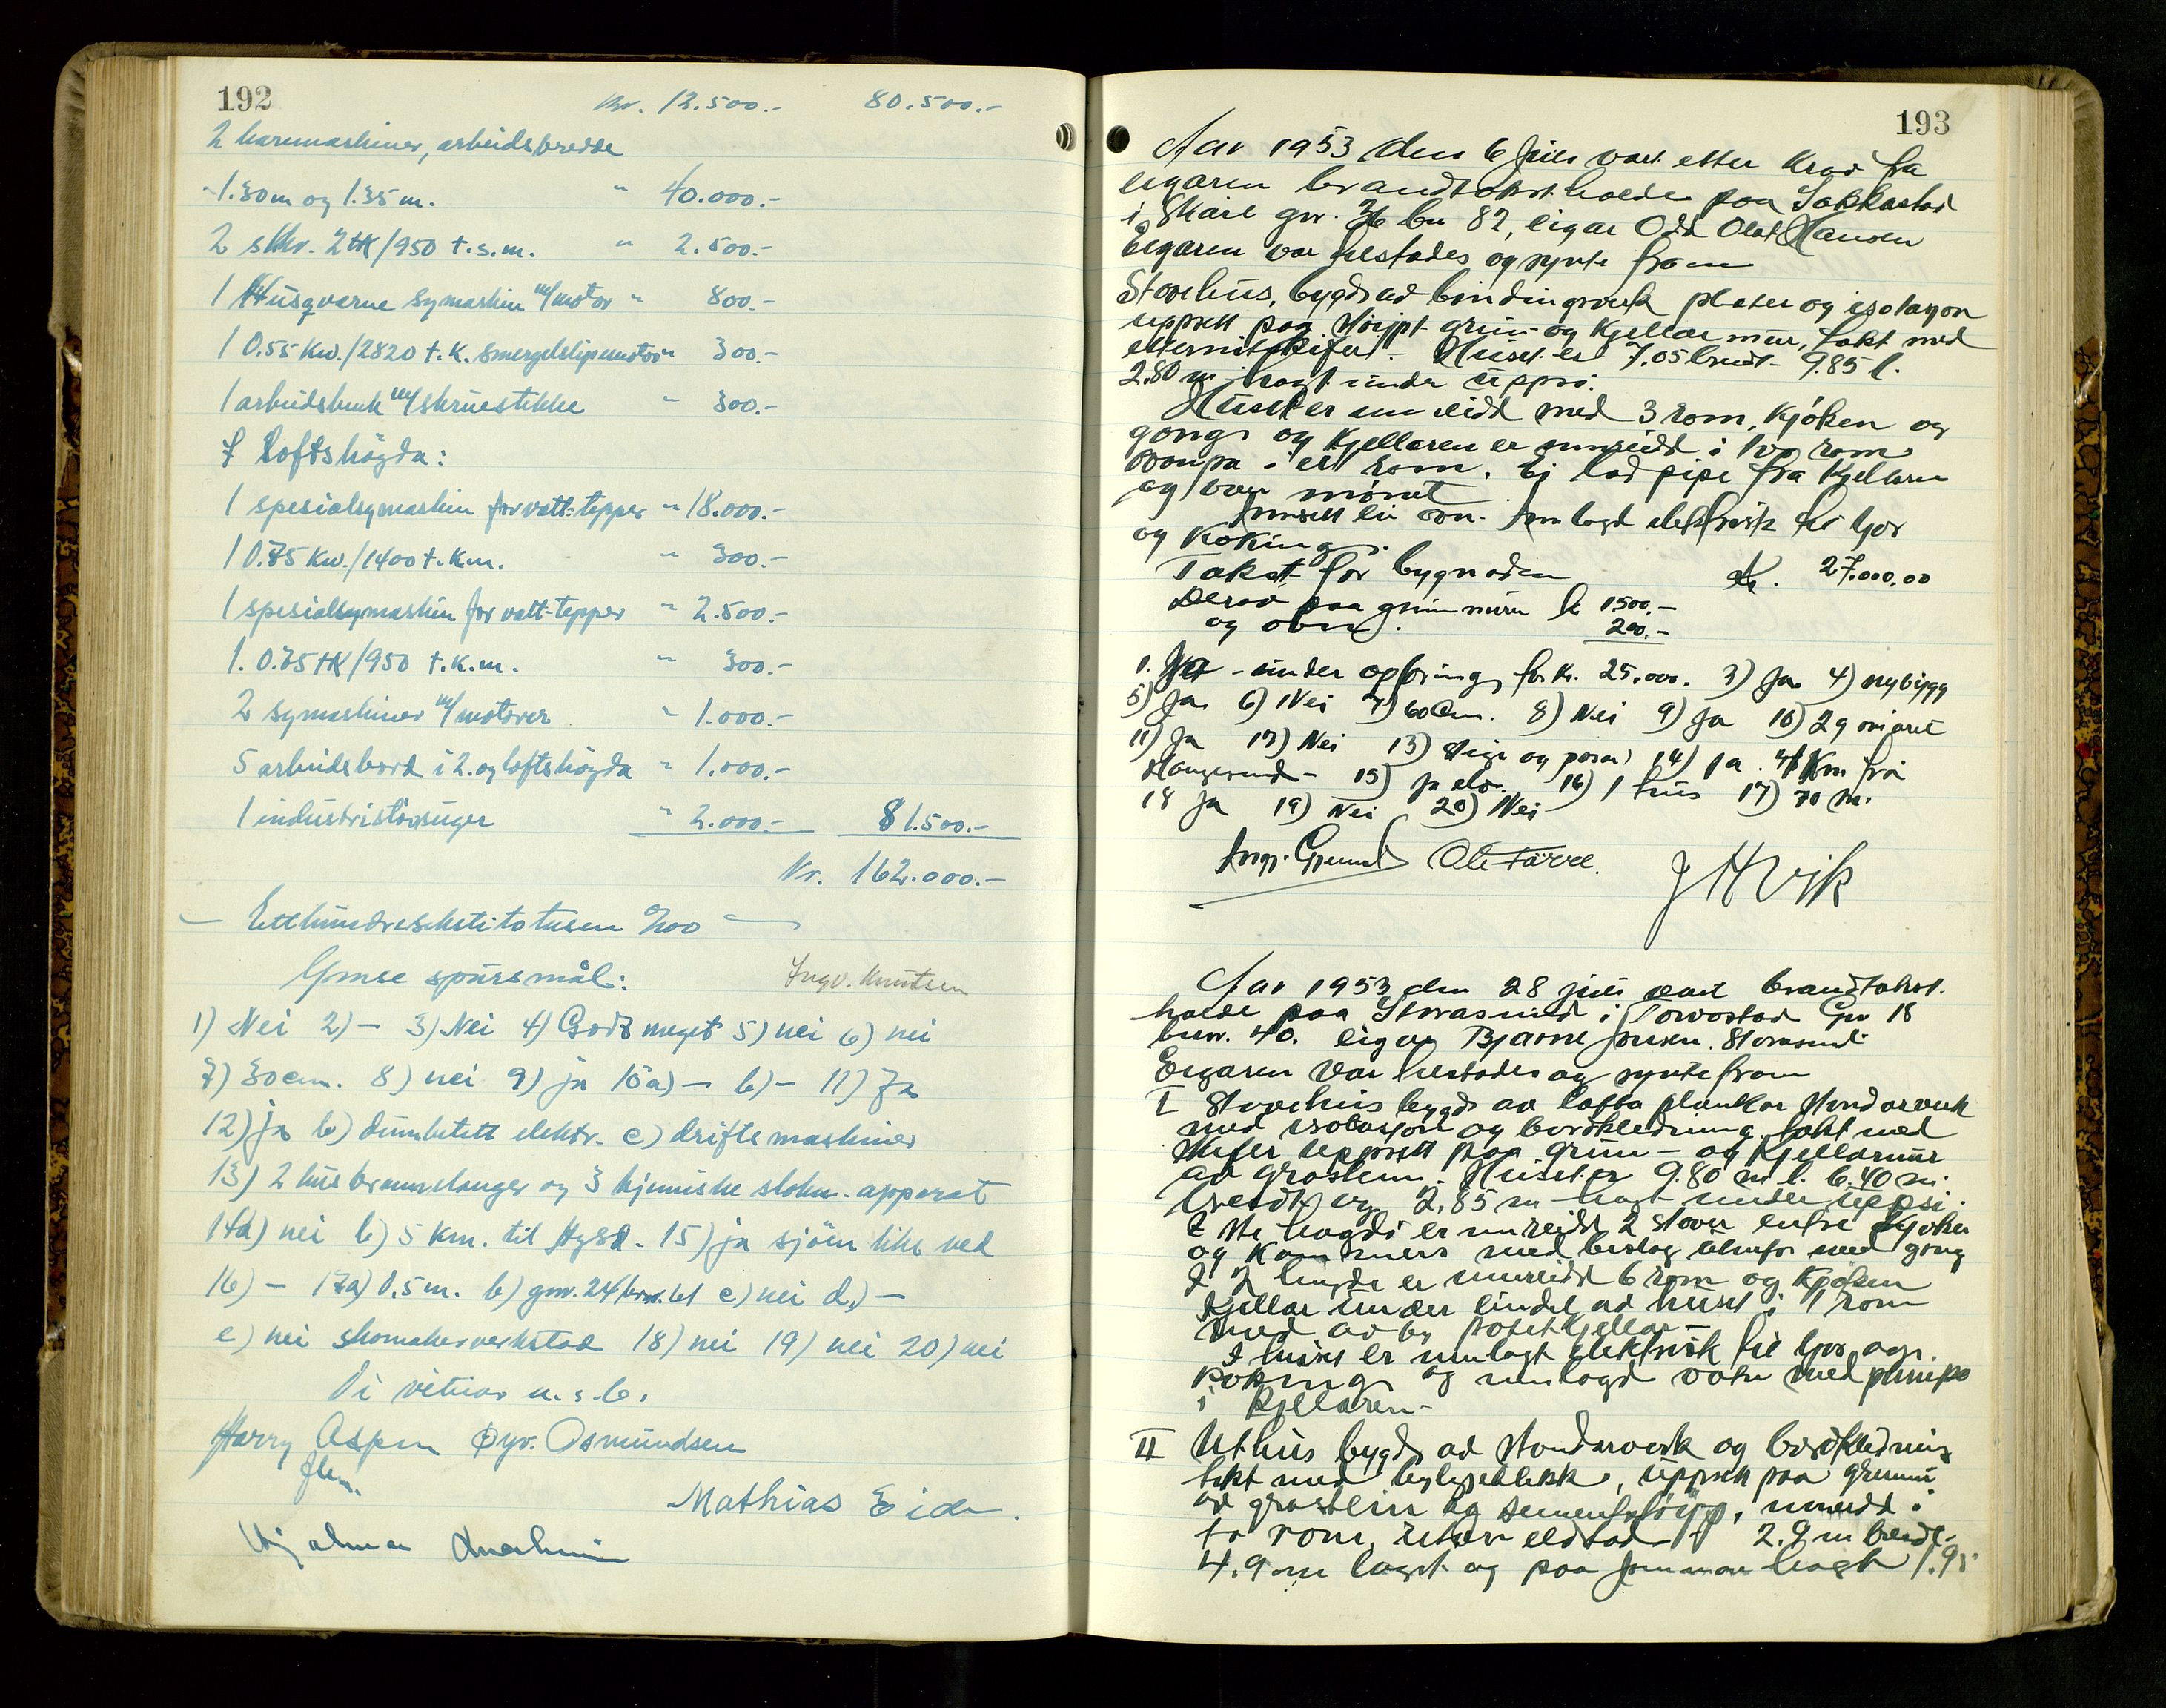 192
Kr. 12.500.- 80.500.-
2 karemaskiner, arbeidsbredde
1.30m og 1.35 m. " 40.000.-
2 stkr. 2 HK/950 t.s.m. " 2.500.-
1 Husqvarne symaskin m/motor " 800.-
1 0.55 Kw./2820 t.K. smergelslipemotor " 300.-
1 arbeidsbenk m/skruestikke " 300.-
I loftshögda:
1 spesialsymaskin for vatt-tepper " 18.000.-
1 0.75 Kw./1400 t.K.m. " 300.-
1 spesialsymaskin for vatt-tepper " 2.500.-
1. 0.75 HK/950 t.K.m. " 300.-
2 symaskiner m/motorer " 1.000.-
5 arbeidsbord i 2. og loftshögda " 1.000.-
1 industristövsuger " 2.000.- 81.500.-
Kr. 162.000.-
— Etthundresekstitotusen %oo —
Ymse spursmål: Ingv. Knutsen
1) Nei 2) - 3) Nei 4) Godt meget 5) nei 6) nei
7) 30 cm. 8) nei 9) ja 10a) - b) - 11) Ja
12) ja b) elektr. c) driftsmaskiner
13) 2 husbrannslanger og 3 kjemiske slokn. apparat
14a) nei b) 5 km. til Hgsd. 15) ja sjöen like ved
16) - 17a) 0.5 m. b) gnr. 24 brnr. 61 c) nei d.) -
e) nei skomakerverkstad 18) nei 19) nei 20) nei
Vi vitnar u. s. b.
Harry Aspen Øyv. Osmundsen
Mathias Eide.
193
Aar 1953 den 6 juli vart etter krav fra
eigaren brandtakst halden paa Sakkastad
i Skåre gnr. 36 bnr 82, eigar Odd Olaf Hansen
Eigaren var tilstades og synte fram
Stovehus, bygd ad bindingsverk plater og isolasjon
uppsett paa stöypt grun- og Kjellar mur, takt med
eternitskifer - Huset er 7.05 breidt - 9.85 l.
2.80 m högt under uppsi.
Huset er innreidd med 3 rom, Kjöken og
gong og Kjellaren er innreidd i tvo rom
i eit rom. Ej lad pipe fra Kjellaren
og over mönet
Innsett ein ovn. Innlagd elektrisk til ljos
og Koking.
Takst for bygnaden Kr. 27.000,00
Derav paa grunnmuren kr 1500.-
og ovn. 200.-
1. Nei - under opföring for Kr. 25.000. 3) Ja 4) nybygg
5) Ja 6) Nei 7) 60 cm. 8) Nei 9) Ja 10) 29
11) Ja 12) Nei 13) Stige og 14) ja. 4 Km frå
Haugesund - 15) ja 16) 1 hus 17) 70 m.
18 Ja 19) Nei 20) Nei
Ole Förre. J H Vik
Aar 1953 den 28 juli vart brandtakst
halde paa Storasund i Torvastad Gnr 18
bnr. 40. eigar Bjarne Jensen. Storasund
Eigaren var tilstades og synte fram
I Stovehus bygd av lafta plankar stendarverk
med isolasjon og bordkledning. takt med
skifer uppsett paa grun- og Kjellarmur
av graastein. Huset er 9.80 m l. 6.40 m.
breidt og 2,85 m högt under uppsi.
I ste högdi er innreidd 2 stover entre Kjöken
og Kammers med beslag med gong
I 2 högda er innreidd 6 rom og Kjöken
Kjellar under eindel ad huset i 1 rom
med
I huset er innlagt elektrisk til ljos og
Koking og innlagd vatn med pumpe
i Kjellaren -
II Uthus bygd ad stendarverk og bordkledning
tekt med bylgjeblekk, uppsett paa grunn
ad graastein og sementstöyp, innreidd i
to rom, uten eldstad - 2.9 m breidt -
4.9 m langt og paa högt 1.95